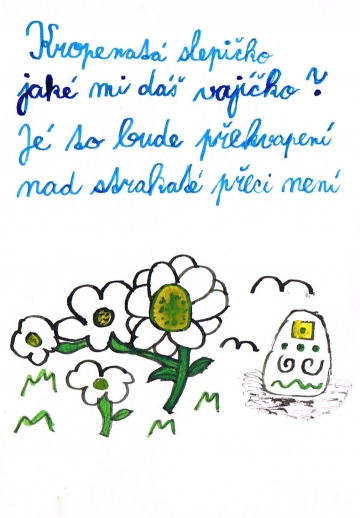 Kropenatá slepičko
jaké mi dáš vajíčko?
Jé to bude překvapení
nad strakaté přeci není